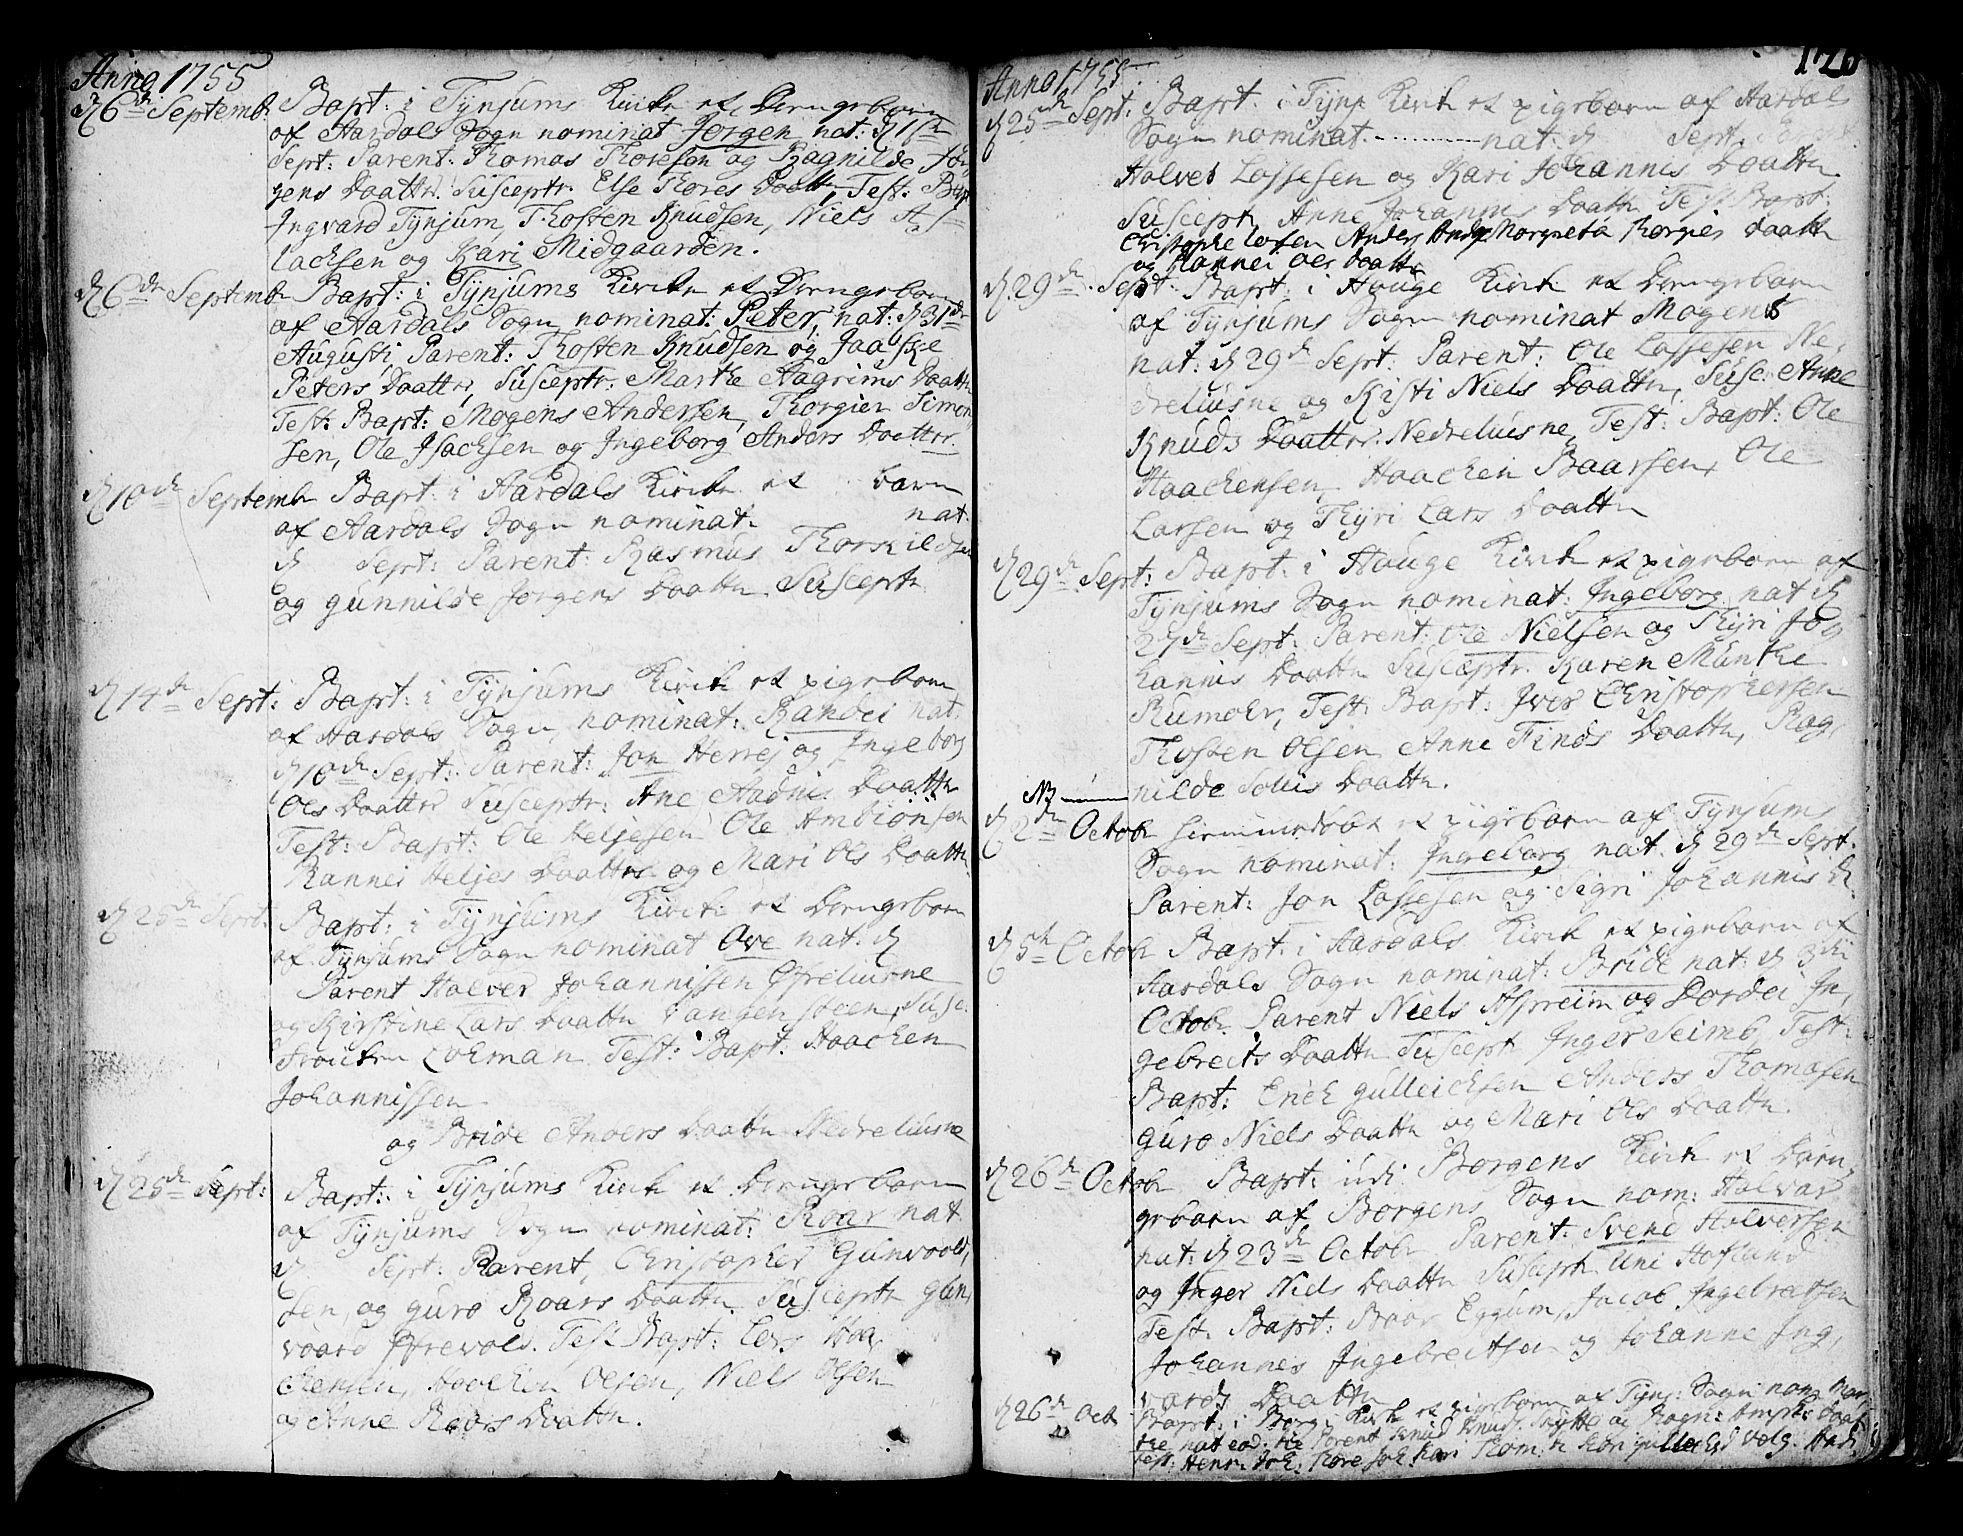 Anno 1755
d 6te Septemb Bapt: i Tÿnjums Kirke et Drengebarn
af Aardals Sogn nominat Jørgen nat: d 1te
Sept: Parent: Thomas Thoresen og Ragnilde Jør
gens Daatter. Susceptr. Else Thores Daatter, Test: Bapt
Ingvard Tÿnjum, Thosten Knudsen, Niels As
lachsen og Kari Midgaarden.
d 6te Septemb Bapt: i Tÿnjums Kirke et Drengebarn
af Aardals Sogn nominat: Peter, nat: d 31te
Augusti, Parent: Thosten Knudsen og Jaaske
Peters Daatter, Susceptr: Marthe Aagrims Daatter
Test: Bapt: Mogens Andersen, Thorgier Simon
sen, Ole Isachsen og Ingeborg Anders Daatter.
d 10de Septemb Bapt: i Aardals Kirke et barn
af Aardals Sogn nominat: nat:
d Sept: Parent: Rasmus Thorkildsen
og Gunnilde Jørgens Daatter. Susceptr
d 14de Sept: Bapt: i Tÿnjums Kirke et pigebarn
af Aardals Sogn nominat: Randei nat:
d 10de Sept: Parent: Jon Herrej og Ingeborg
Ols Daatter Susceptr: Ane Aadnes Daatter
Test: Bapt: Ole Heljesen Ole Ambiönsen
Rannei Heljes Daatter og Mari Ols Daatter
d 25de Sept: Bapt: i Tÿnjums Kirke et Drengebarn
af Tÿnjums Sogn nominat Ove nat: d
Parent Halver Johannissen Øfreliusne
og Kirstine Lars Daatter Vangensteen, Susc:
Frouken Lohman Test: Bapt: Haachen
Johannissen
og Bride Anders Daatter Nedreliusne
d 25de Sept: Bapt: i Tÿnjums Kirke et Drengebarn
af Tÿnjums Sogn nominat: Roar nat
d Sept: Parent, Christopher Gunvoold,
sen, og Guro Roars Daatter Susceptr Gun,
voard Øfrevold. Test Bapt: Lars Haa,
chensen, Haachen Olsen, Niels Olsen
og Anne Roars Daatter.
Anno 1755 126
d 25de Sept: Bapt: i Tÿnj: Kirke et pigebarn af Aardals
Sogn nominat. nat: d Sept: Parent
Halver Lassesen og Kari Johannis Daatter
Suscept Anne Johannis Daatter Test Bapt:
Christophe Anders Margreta Thorgies Daatter
og Rannei Ols Daatter
d 29de Sept: Bapt: i Houge Kirke et Drengebarn
af Tÿnjums Sogn nominat Mogens
nat: d 29de Sept: Parent: Ole Lassesen Ne,
dreliusne og Kisti Niels Daatter, Susc: Anne
Knuds Daatter Nedreliusne, Test: Bapt: Ole
Haachensen, Haachen Baarsen, Ole
Larsen og Thÿri Lars Daatter
d 29de Sept: Bapt: i Houge Kirke et pigebarn af
Tÿnjums Sogn nominat: Ingeborg nat d
27de Sept: Parent: Ole Nielsen og Thÿri Jo,
hannis Daatter Susceptr. Karen Munthe
Rumohr, Test: Bapt: Iver Christophersen
Thosten Olsen Anne Finds Daatter, Rag,
nilde Daatter.
NB
d 2den Octob hiemmedøbt et pigebarn af Tÿnjums
Sogn nominat: Ingeborg nat d 29de Sept.
Parent: Jon Lassesen og Sigri Johannis D:
d 5te Octob Bapt: i Aardals Kirke et pigebarn af
Aardals Sogn nominat: Bride nat: d 3die
Octob: Parent Niels Aspreim og Dordei In,
gebreits Daatter Suscept Inger Seimb, Test:
Bapt: Erich Gulleichsen Anders Thomasen
Guro Niels Daatter og Mari Ols Daatter.
d 26de Octob Bapt: udi Borgens Kirke et Dren,
gebarn af Borgens Sogn nom: Halvar
nat: d 23de Octob: Parent: Svend Halversen
og Inger Niels Daatter Suscept Uni Hofland
Test. Bapt: Baar Eggum, Jacob Ingebretsen
Johannes Ingebreitsen og Johanne Ing,
vards Daatter
d 26de Oct Bapt: i Borg: Kirke et pigebarn af Tÿnj: Sogn nom: Mar,
the nat Parent Knud Knuds. og Ragn: Daat
Test. Joh: Thore